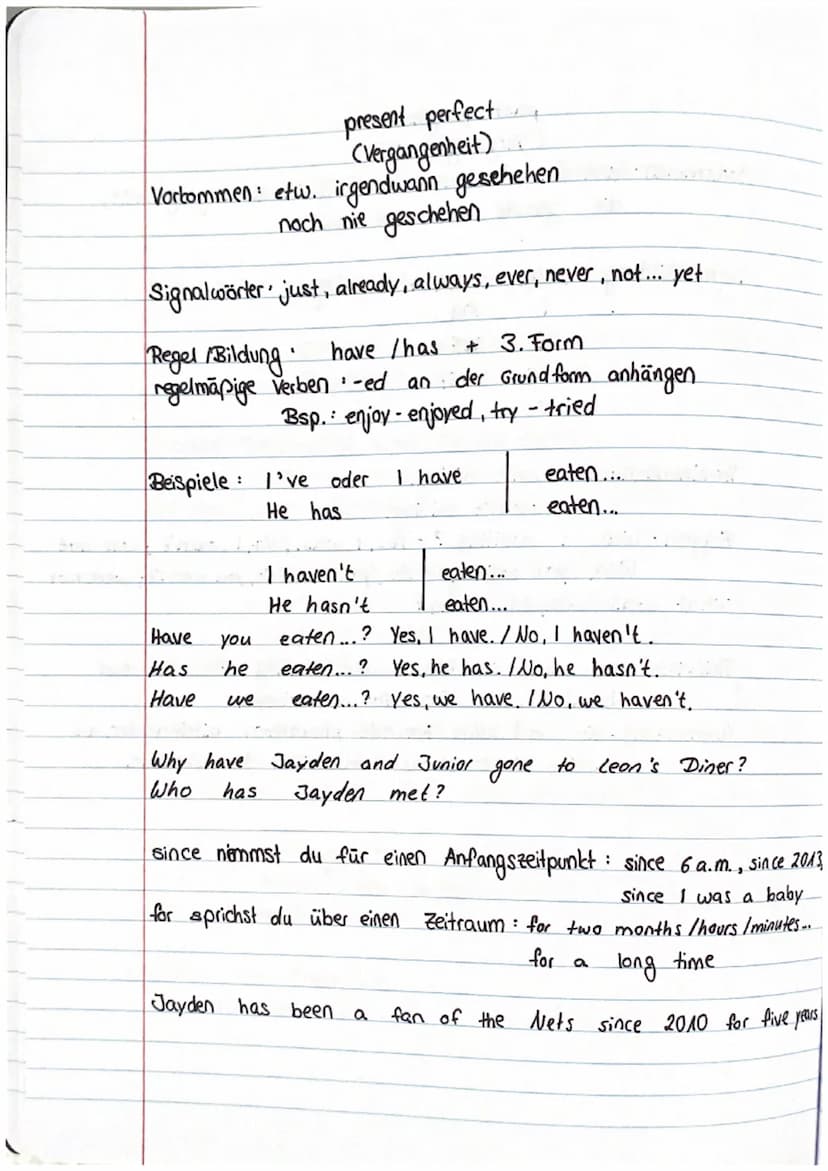 present perfect
(Vergangenheit)
Vorkommen: etw. irgendwann geschehen
noch nie geschehen
Signalwörter: just, already, always, ever, never, not... yet
Regel /Bildung: have /has + 3. Form
regelmäßige Verben: -ed an der Grundform anhängen
Bsp.: enjoy - enjoyed, try - tried
Beispiele: I've oder I have | eaten...
He has | eaten...
I haven't | eaten...
He hasn't | eaten...
Have you eaten...? Yes, I have. / No, I haven't.
Has he eaten...? Yes, he has. / No, he hasn't.
Have we eaten...? Yes, we have. / No, we haven't.
Why have Jayden and Junior gone to Leon's Diner?
Who has Jayden met?
since nimmst du für einen Anfangszeitpunkt: since 6 a.m., since 2013,
since I was a baby
for sprichst du über einen Zeitraum: for two months /hours /minutes...
for a long time
Jayden has been a fan of the Nets since 2010 for five years